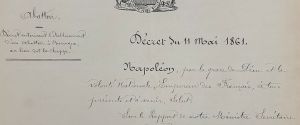 Abattoir.
Décret autorisant l'établissement
d'un abattoir à
Décret du 11 Mai 1861.
Napoléon, par la grâce de Dieu et la
volonté Nationale, Empereur des Français, à tous
présents et à venir, Salut.
Sur le Rapport de notre Ministre Secrétaire